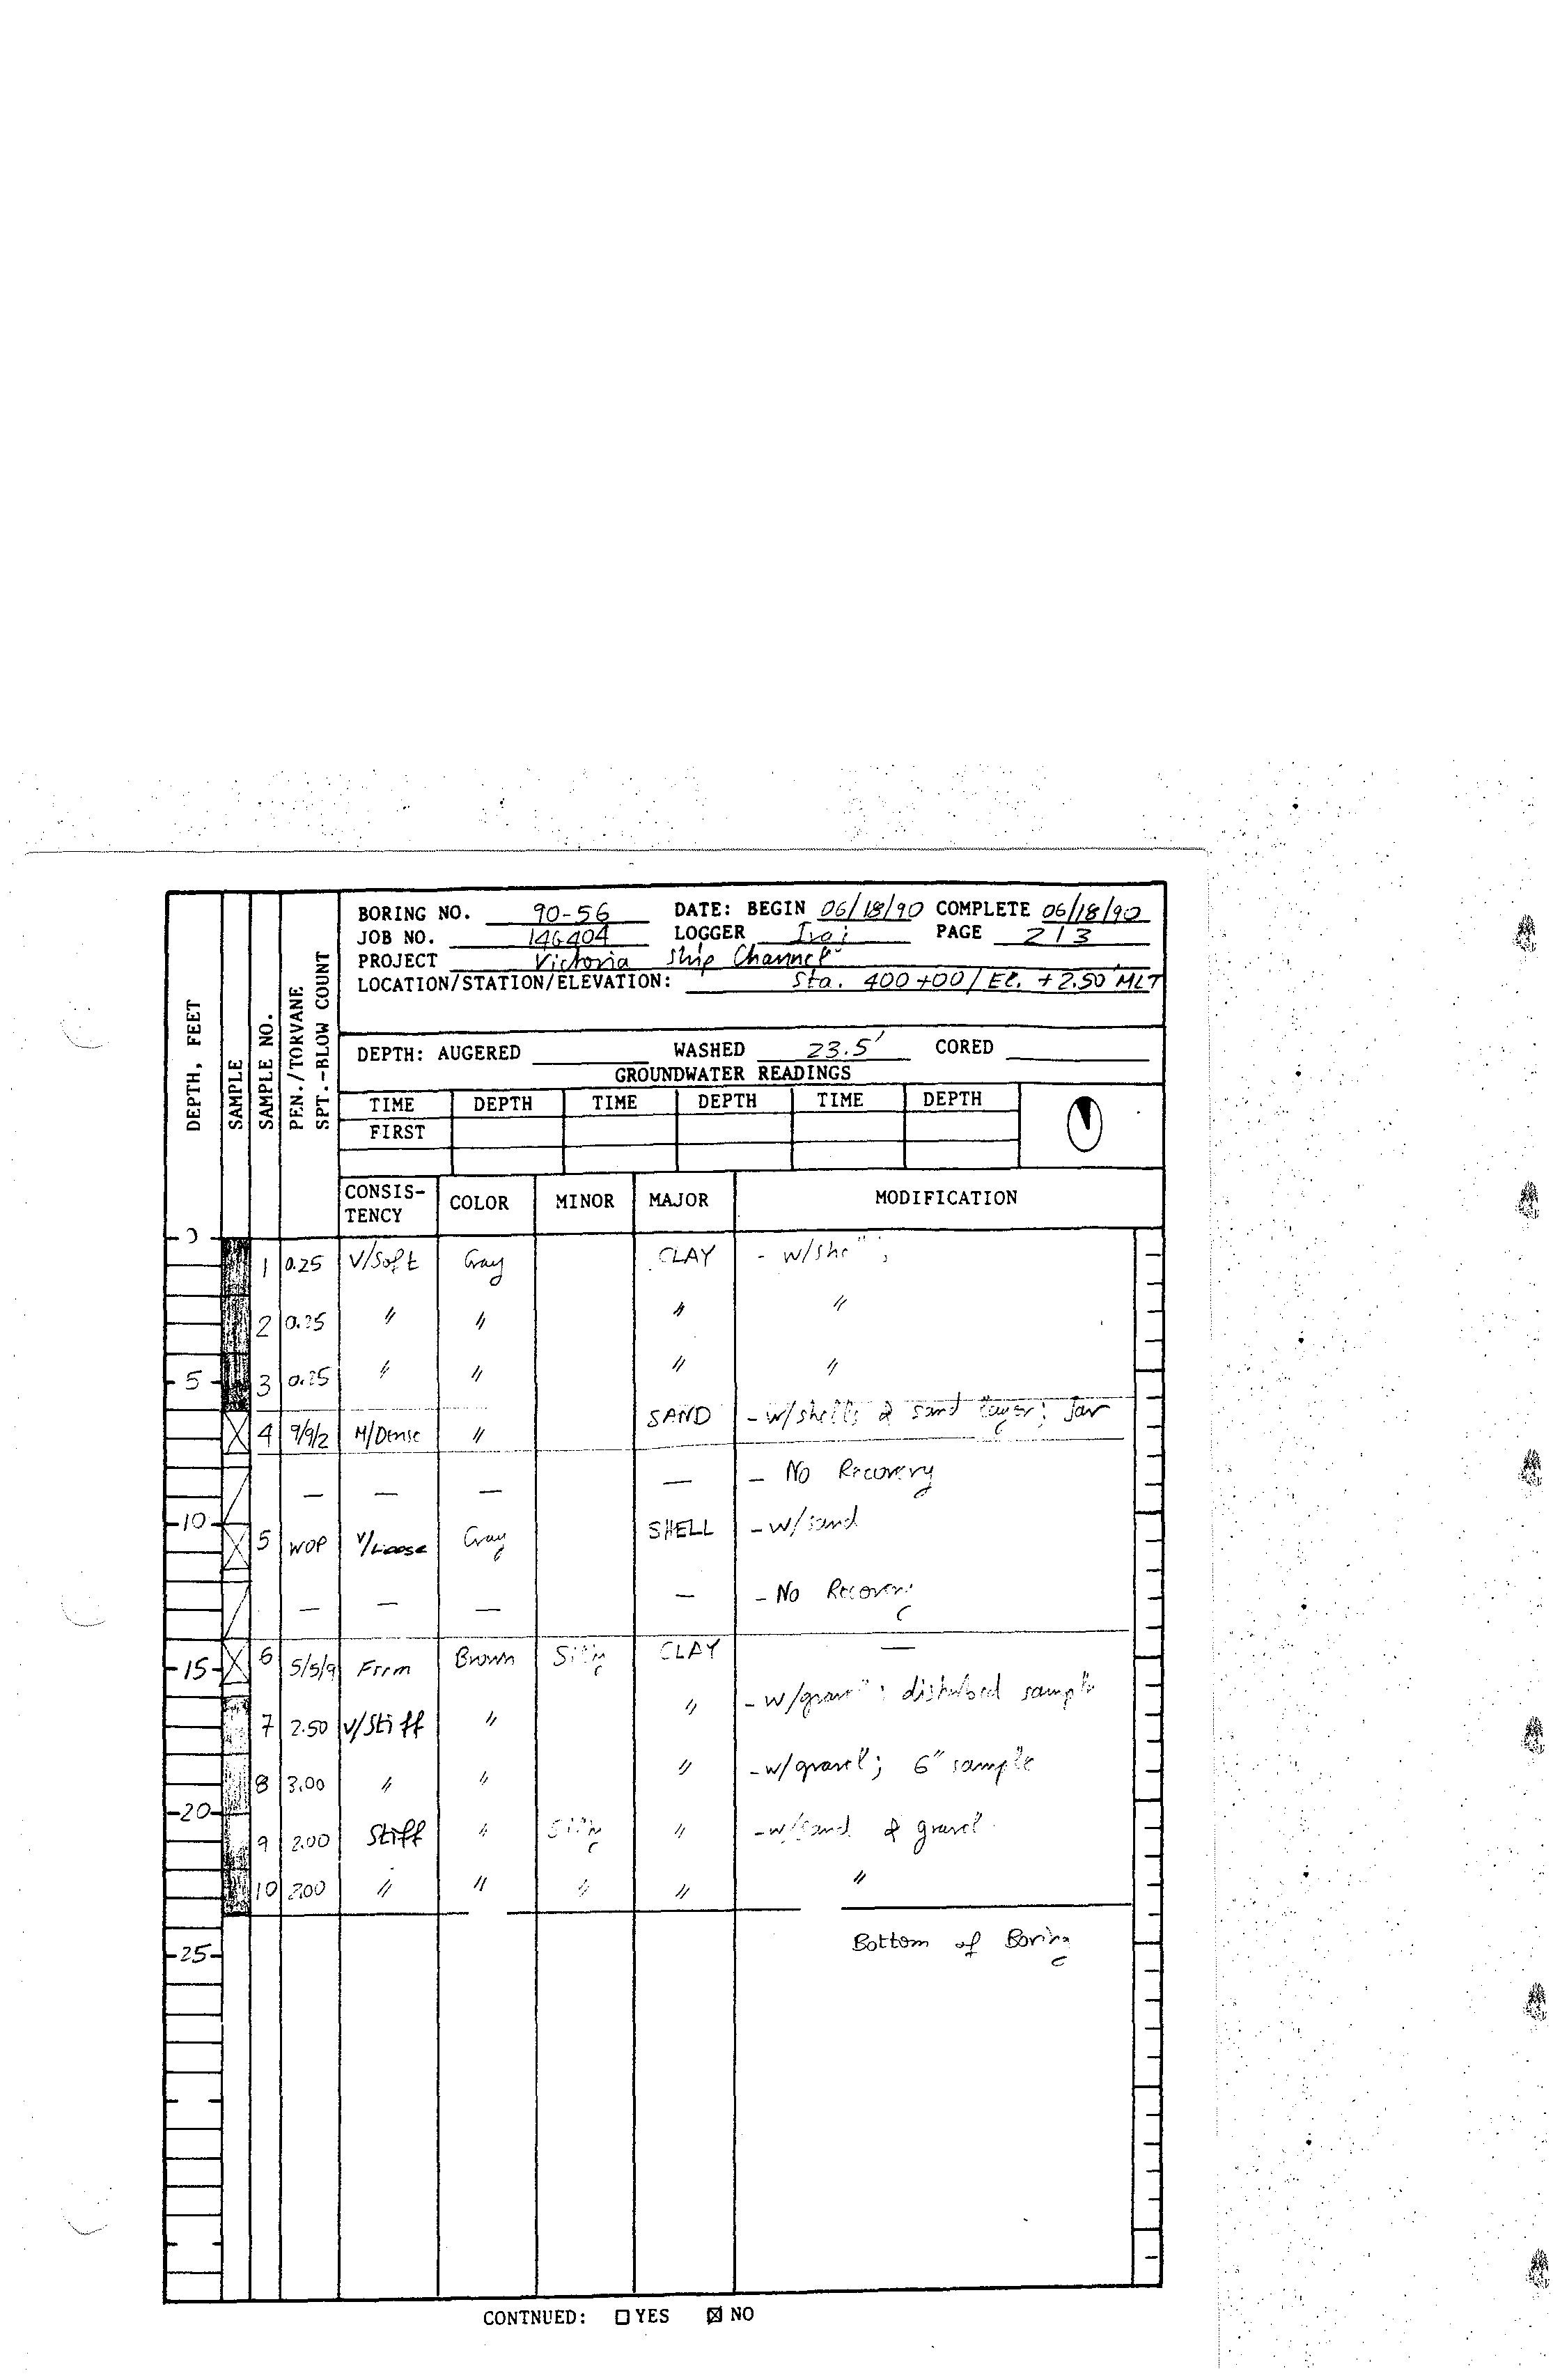 BORING NO. 90-56 DATE: BEGIN 06/18/90 COMPLETE 06/18/90
JOB NO. 146404 LOGGER PAGE 2/3
PROJECT Victoria Ship Channel
LOCATION/STATION/ELEVATION: Sta. 400+00/El. +2.50 MLT
DEPTH, FEET
SAMPLE
SAMPLE NO.
PEN./TORVANE
SPT.-BLOW COUNT
DEPTH: AUGERED WASHED 23.5' CORED
GROUNDWATER READINGS
TIME DEPTH TIME DEPTH TIME DEPTH
FIRST
CONSIS-TENCY COLOR MINOR MAJOR MODIFICATION
0
1 0.25 V/Soft Gray CLAY
2 0.25 〃 〃 〃 〃
5 3 0.25 〃 〃 〃 〃
4 9/9/2 M/Dense 〃 SAND - w/shells & sand layer; Jar
— — — — - No Recovery
10 5 WOP V/Loose Gray SHELL - w/sand
— — — — - No Recovery
15 6 5/5/9 Firm Brown Silty CLAY —
7 2.50 V/Stiff 〃 〃 - w/gravel; disturbed sample
8 3.00 〃 〃 〃 - w/gravel; 6" sample
20
9 2.00 Stiff 〃 Silty 〃 - w/sand & gravel
10 2.00 〃 〃 〃 〃 〃
25 Bottom of Boring
CONTNUED: ☐ YES ☒ NO